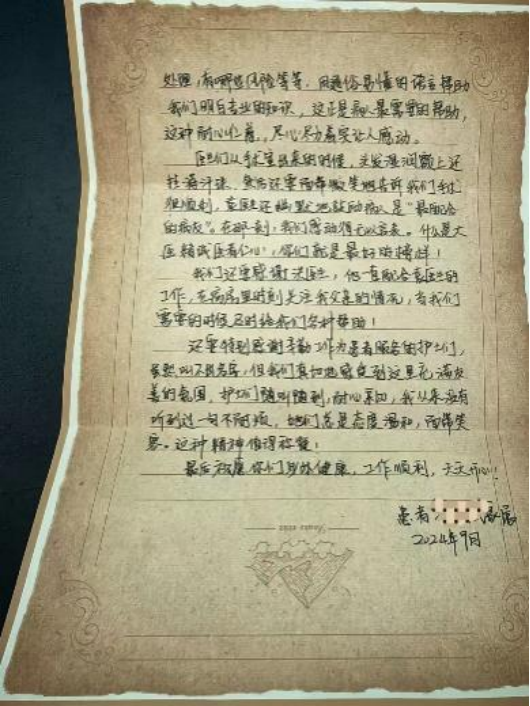 处理,有哪些风险等等,用通俗易懂的语言帮助
我们明白专业的知识,这正是病人最需要的帮助,
这种耐心仁慈,尽心尽力着实让人感动。
医生们从手术室出来的时候,头发湿润额上还
挂满汗珠,然后还要面带微笑地告诉我们手术
很顺利,袁医生还幽默地鼓励病人是“最配合
的病友”。在那一刻,我们感动得无以言表。什么是大
医精诚医者仁心,你们就是最好的榜样!
我们还要感谢 医生,他一直配合袁医生的
工作,在病房里时刻关注我父亲的情况,当我们
需要的时候及时给我们各种帮助!
还要特别感谢辛勤工作为患者服务的护士们,
虽然叫不出名字,但我们真切地感受到这里充满友
善的氛围,护士们随叫随到,耐心亲切,我从来没有
听到过一句不耐烦,她们总是态度温和,面带笑
容。这种精神值得称赞!
最后祝愿你们身体健康,工作顺利,天天开心!
患者 家属
2024年9月